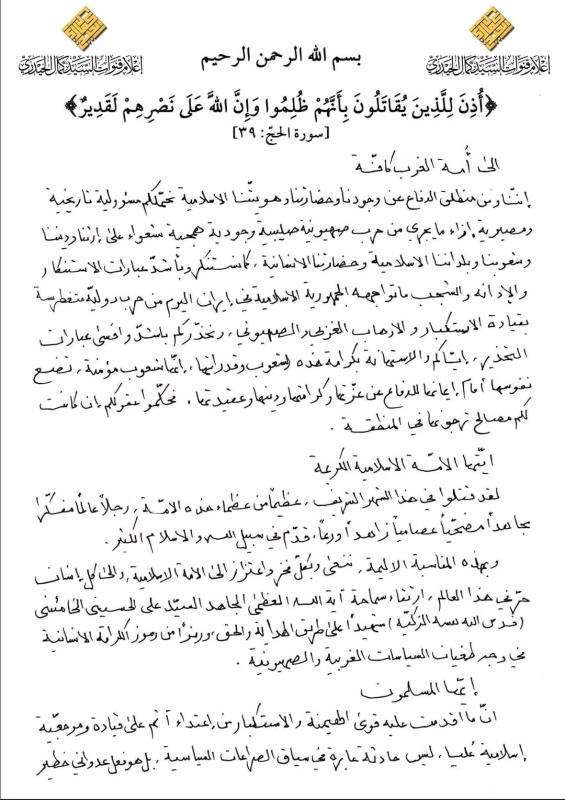 إعلام قنوات السيد كمال الحيدري
إعلام قنوات السيد كمال الحيدري
بسم الله الرحمن الرحيم
﴿أُذِنَ لِلَّذِينَ يُقَاتَلُونَ بِأَنَّهُمْ ظُلِمُوا وَإِنَّ اللهَ عَلَى نَصْرِهِمْ لَقَدِيرٌ﴾
[سورة الحجّ: ٣٩]
الى أُمة الغرب كافّة
إننا ومن منطلق الدفاع عن وجودنا وحضارتنا وهويتنا الاسلامية نحمّلكم مسؤولية تاريخية
ومصيرية إزاء ما يجري من حرب صهيونية صليبية وجودية همجية شعواء على إرثنا وديننا
وشعوبنا وبلداننا الاسلامية وحضارتنا الانسانية، كما نستنكر وبأشدّ عبارات الاستنكار
والإدانة والشجب ما تواجهه الجمهورية الاسلامية في إيران اليوم من حرب دوليّة متغطرسة
بقيادة الاستكبار والارهاب الغربي والصهيوني، ونحذّركم بأشدّ وأقسى عبارات
التحذير، إيّاكم والاستهانة بكرامة هذه الشعوب وقدراتها، إنّها شعوب مؤمنة، تضع
نفوسها أمام إيمانها للدفاع عن عزّتها وكرامتها ودينها وعقيدتها، فحكّموا عقولكم إن كانت
لكم مصالح ترجونها في المنطقة.
ايّتها الامّة الاسلامية الكريمة
لقد قتلوا في هذا الشهر الشريف، عظيماً من عظماء هذه الامّة، رجلاً عالماً مفكّرا
مجاهداً مضحّياً عصامياً زاهداً ورعاً، قدّم في سبيل الله والاسلام الكثير.
وبهذه المناسبة الاليمة، ننعى وبكلّ فخر واعتزاز الى الامّة الاسلامية، والى كل إنسان
حرّ في هذا العالم، ارتقاء سماحة آية الله العظمى المجاهد السيّد علي الحسيني الخامنئي
(قدس الله نفسه الزكيّة) شهيداً على طريق الهداية والحق، ورمزاً من رموز الكرامة الانسانية
في وجه طغيان السياسات الغربية والصهيونية.
إيّها المسلمون
انّ ما أقدمت عليه قوى الهيمنة والاستكبار من إعتداء آثم على قيادة ومرجعيّة
إسلامية عُليا، ليس حادثة عابرة في سياق الصراعات السياسية، بل هو فعل عدواني خطير